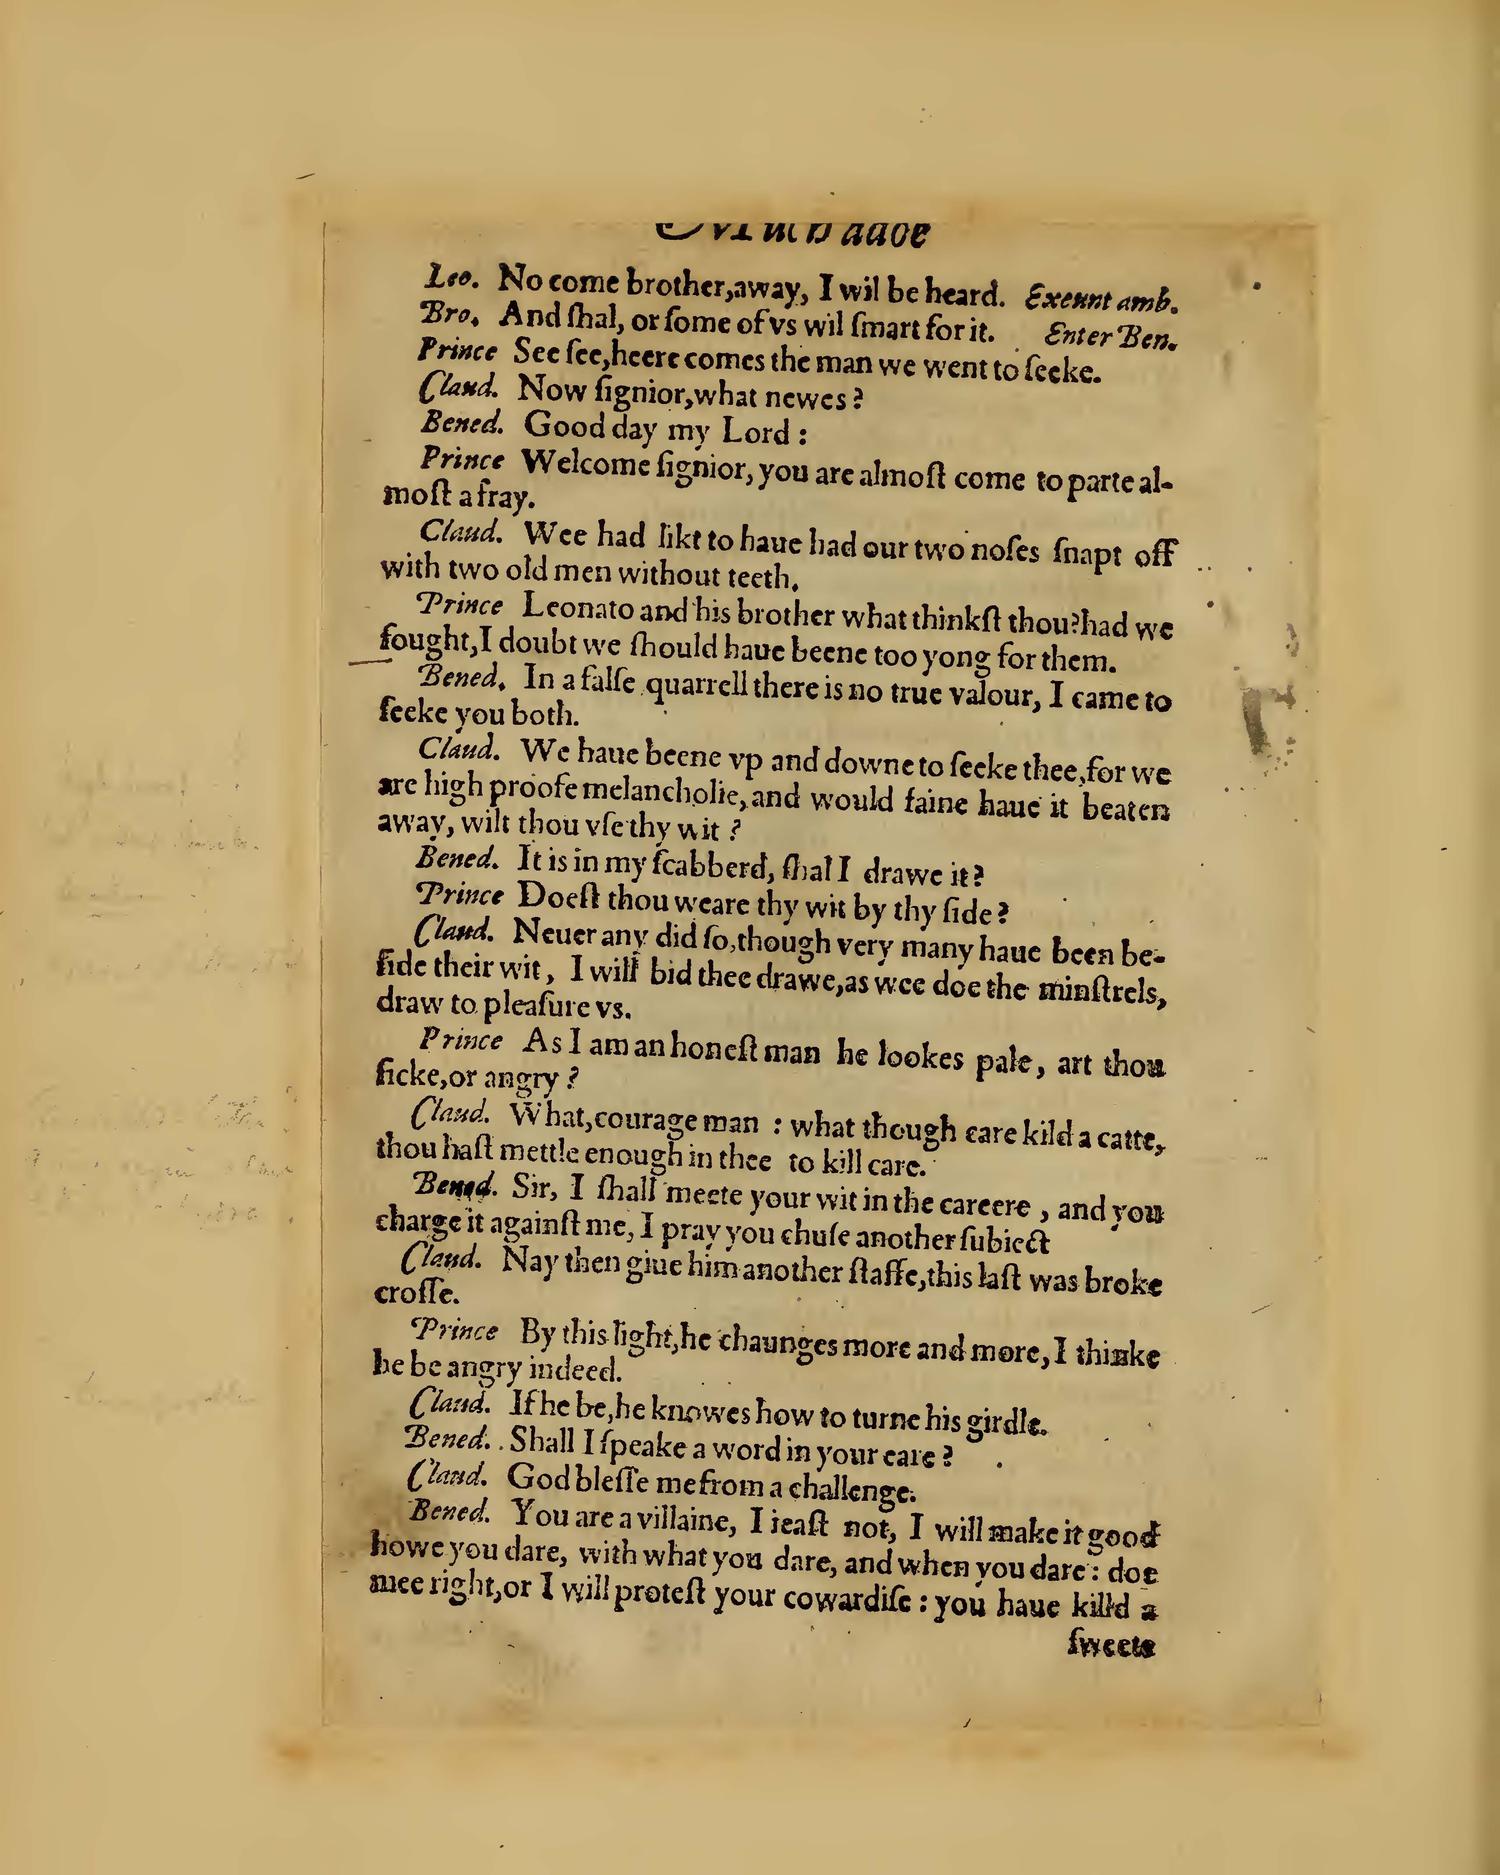 Much adoe
Leo. No come brother,away, I wil be heard. Exeunt amb.
Bro. And ſhal, or ſome of vs wil ſmart for it. Enter Ben.
Prince See ſee,heere comes the man we went to ſeeke.
Claud. Now ſignior,what newes?
Bened. Good day my Lord:
Prince Welcome ſignior, you are almoſt come to parte al-
moſt a fray.
Claud. Wee had likt to haue had our two noſes ſnapt off
with two old men without teeth.
Prince Leonato and his brother what thinkſt thou?had we
fought,I doubt we ſhould haue beene too yong for them.
Bened. In a falſe quarrell there is no true valour, I came to
ſeeke you both.
Claud. We haue beene vp and downe to ſeeke thee,for we
are high proofe melancholie, and would faine haue it beaten
away, wilt thou vſe thy wit?
Bened. It is in my ſcabberd, ſhal I drawe it?
Prince Doeſt thou weare thy wit by thy ſide?
Claud. Neuer any did ſo,though very many haue been be-
ſide their wit, I will bid thee drawe,as wee doe the minſtrels,
draw to pleaſure vs.
Prince As I am an honeſt man he lookes pale, art thou
ſicke,or angry?
Claud. What,courage man: what though care kild a catte,
thou haſt mettle enough in thee to kill care.
Bened. Sir, I ſhall meete your wit in the careere, and you
charge it againſt me, I pray you chuſe another ſubiect
Claud. Nay then giue him another ſtaffe,this laſt was broke
croſſe.
Prince By this light,he chaunges more and more, I thinke
he be angry indeed.
Claud. If he be,he knowes how to turne his girdle.
Bened. Shall I ſpeake a word in your eare?
Claud. God bleſſe me from a challenge.
Bened. You are a villaine, I ieaſt not, I will make it good
howe you dare, with what you dare, and when you dare: doe
mee right,or I will proteſt your cowardiſe: you haue killd a
ſweete